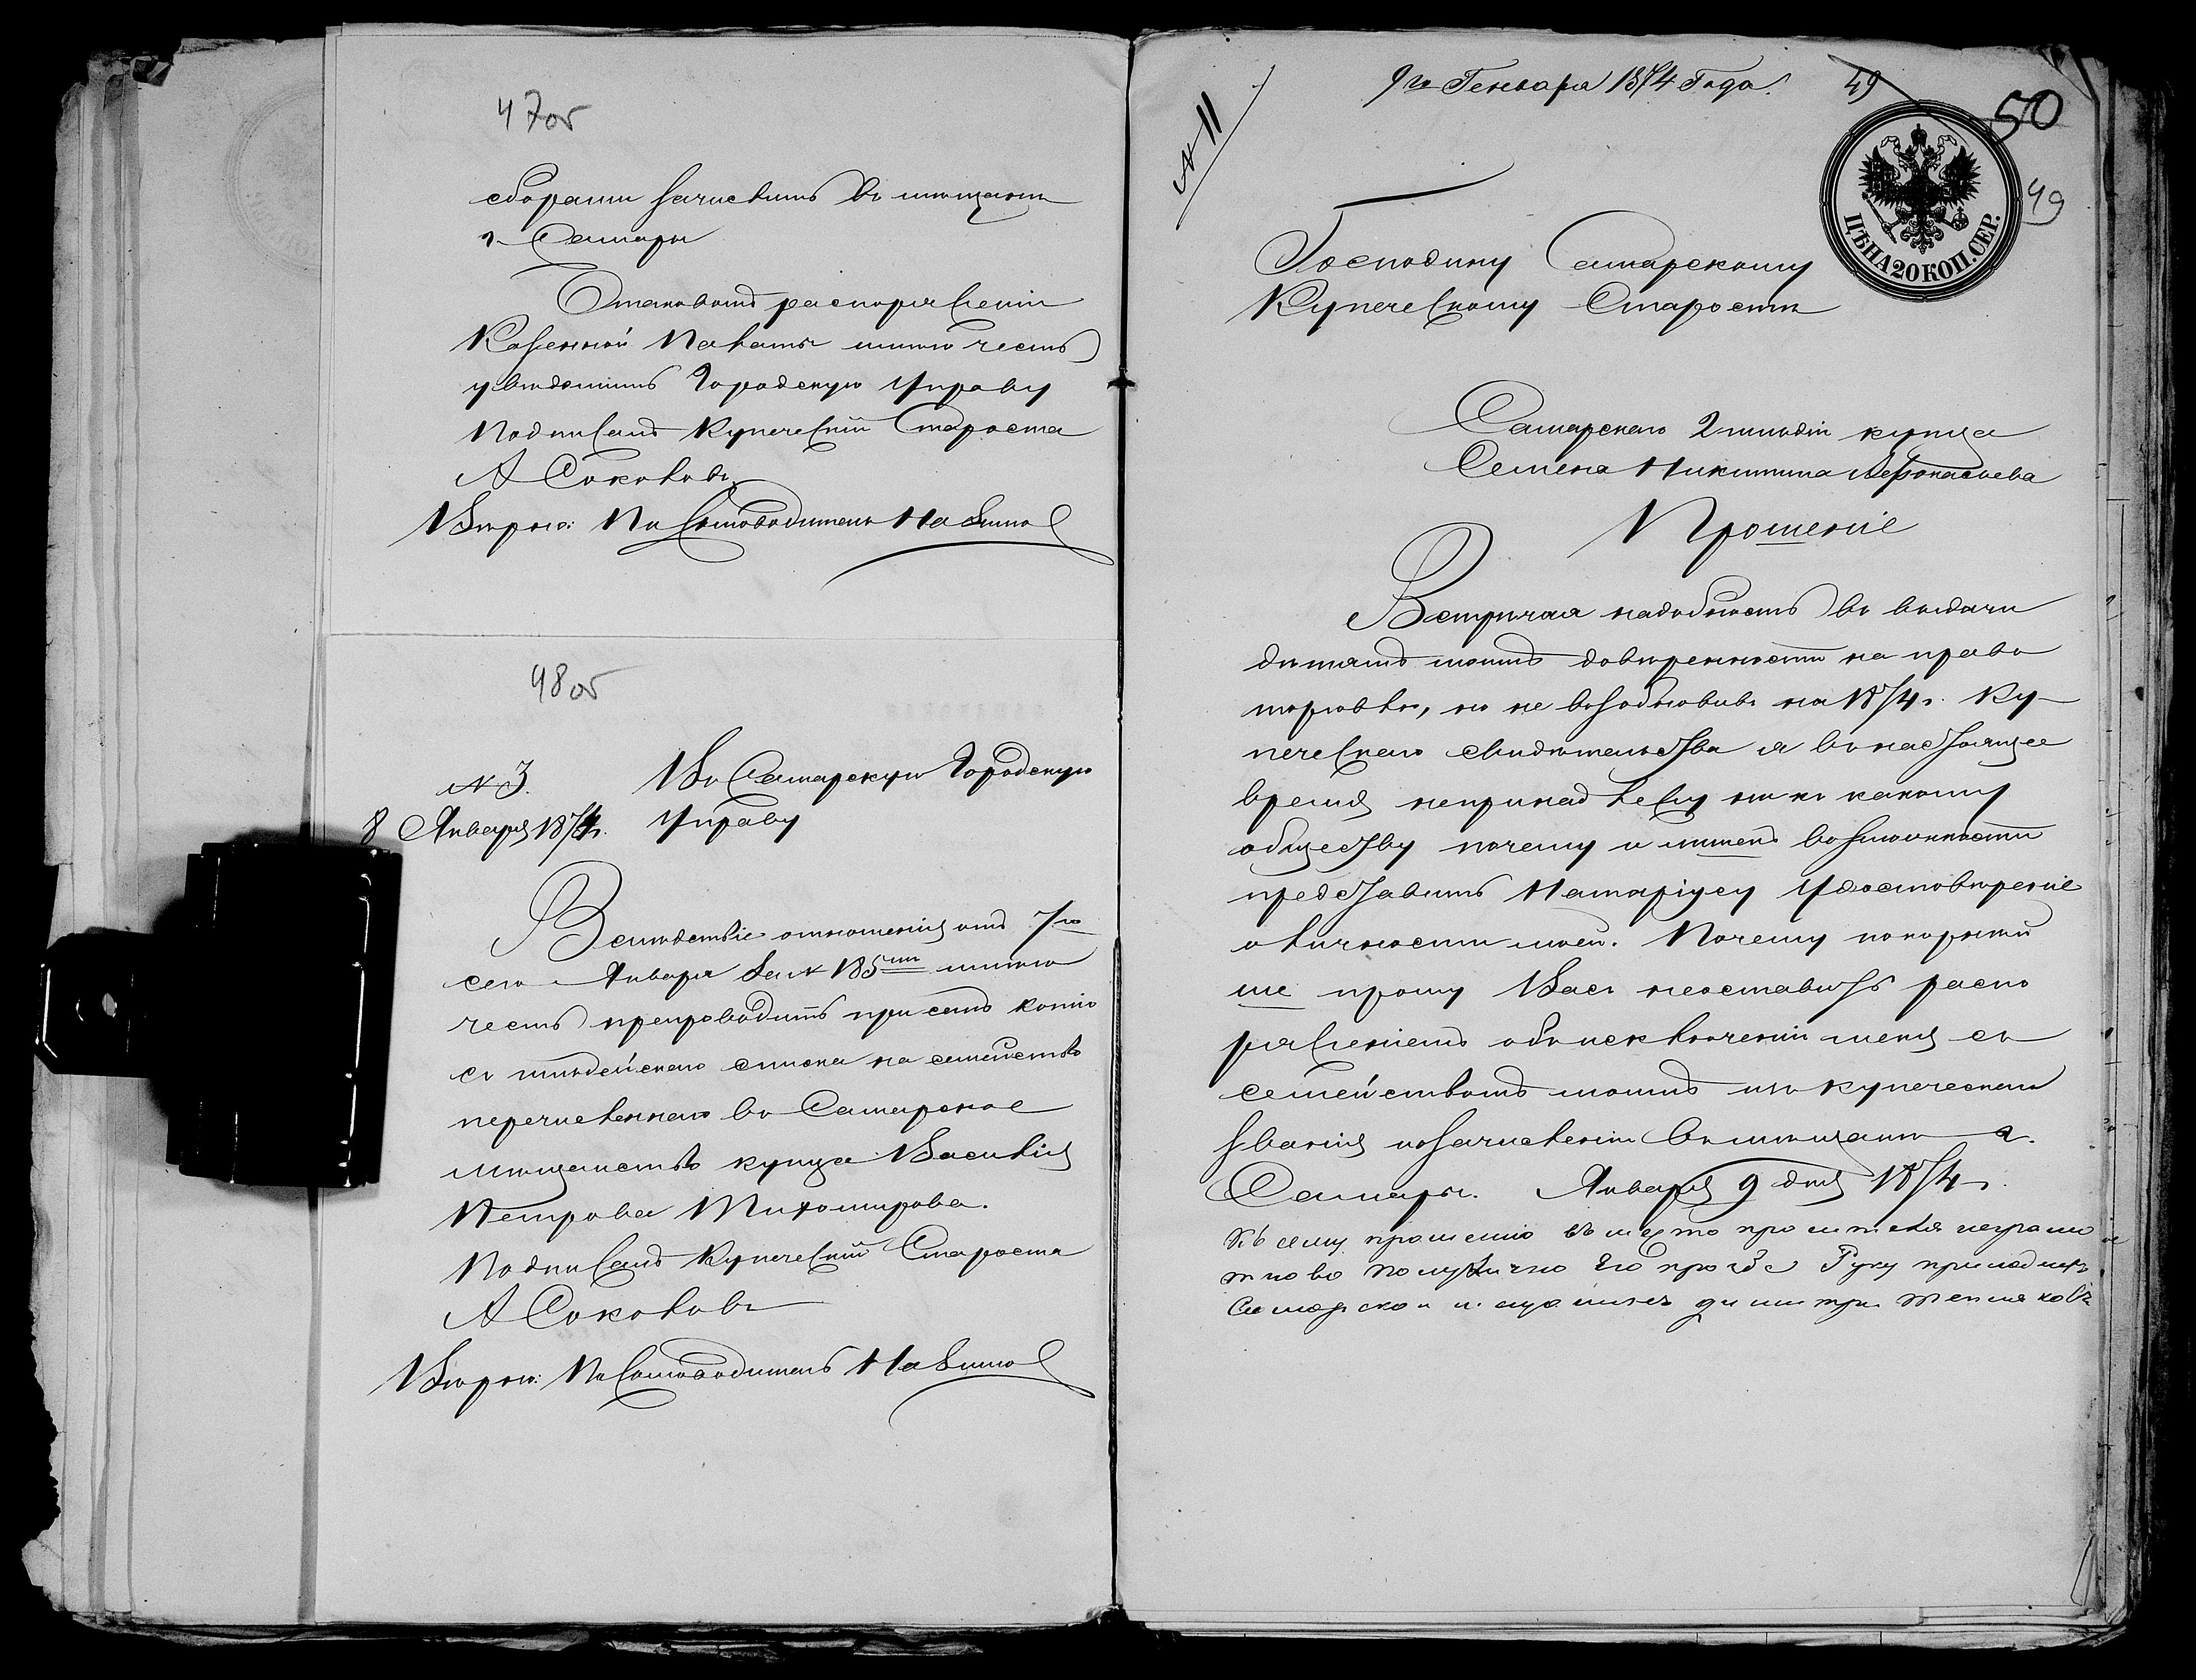 47об
сборами зачислить въ мѣщане
г. Самары
О таковомъ распоряженіи
Казенной Палаты имѣю честь
увѣдомить Городскую Управу
Подписалъ Купеческій Староста
А Соколовъ
Вѣрно: Письмоводитель
48об
№ 3.
8 Января 1874 г.
Въ Самарскую Городскую
Управу
Вслѣдствіе отношенія отъ 7го
сего Января за № 185мъ имѣю
честь препроводить при семъ копію
съ гильдейскаго списка на семейство
перечисленнаго въ Самарское
мѣщанство купца Василія
Петрова Тихомирова.
Подписалъ Купеческій Староста
А Соколовъ
Вѣрно: Письмоводитель
№ 11
9го Генваря 1874 Года.
49
50
49
ЦѢНА 20 КОП. СЕР.
Господину Самарскому
Купеческому Старостѣ
Самарскаго 2 гильдіи купца
Семена Никитина Афонасьева
Прошеніе
Встрѣчая надобность въ выдачи
дѣтямъ моимъ довѣренности на право
торговли, но не возобновивъ на 1874 г. Ку-
печескаго свидѣтельства я въ настоящее
время непринадлежу ни къ какому
обществу почему и лишенъ возможности
представить Натаріусу Удостовѣреніе
о личности моей. Почему покорнѣй
ше прошу Васъ неоставить распо
ряженіемъ объ исключеніи меня съ
семействомъ моимъ изъ купеческаго
званія и зачисленіи въ мѣщане г.
Самары. Января 9 дня 1874 г.
Къ сему прошенію вместо просителя неграмо
тново по лично Его прозбе Руку приложилъ
Самарской мещанинъ Димитри